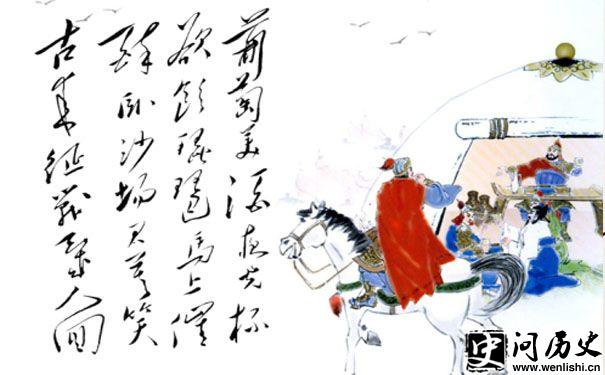 葡萄美酒夜光杯
欲饮琵琶马上催
醉卧沙场君莫笑
古来征战几人回
史 问历史
www.wenlishi.cn